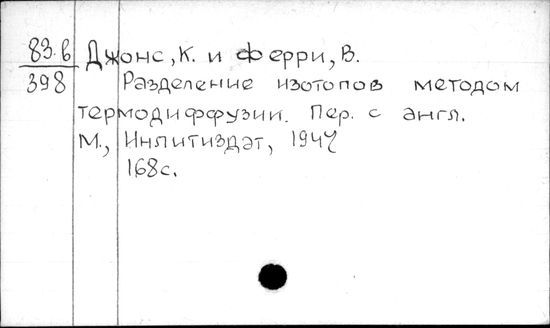 83.в
398
Джонс, К. и Ферри, В.
Разделение изотопов методом
термодиффузии. Пер. с англ.
М., Инлитиздат, 1947
168с.